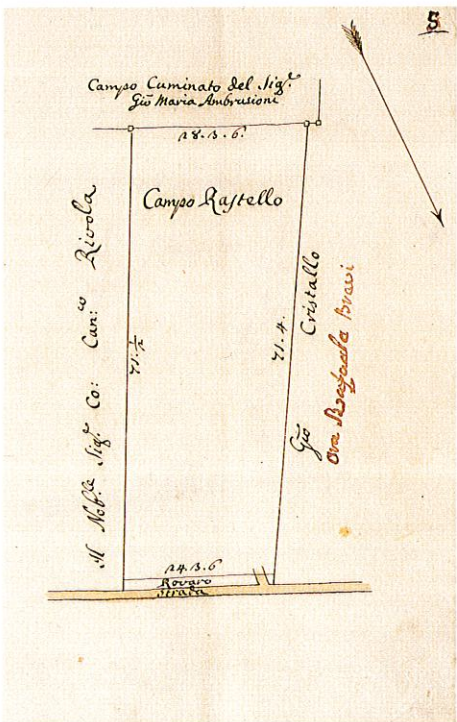 5
Campo Cuminato del Sig.r
Gio Maria Ambrusioni
28. 3. 6.
Campo Rastello
Il Nob.le Sig.r Co: Can:co Rivola
71. 1/2
71. 4.
Gio Cristallo
Ora Raffaele Bravi
24. 3. 6
Rovaro
Strada